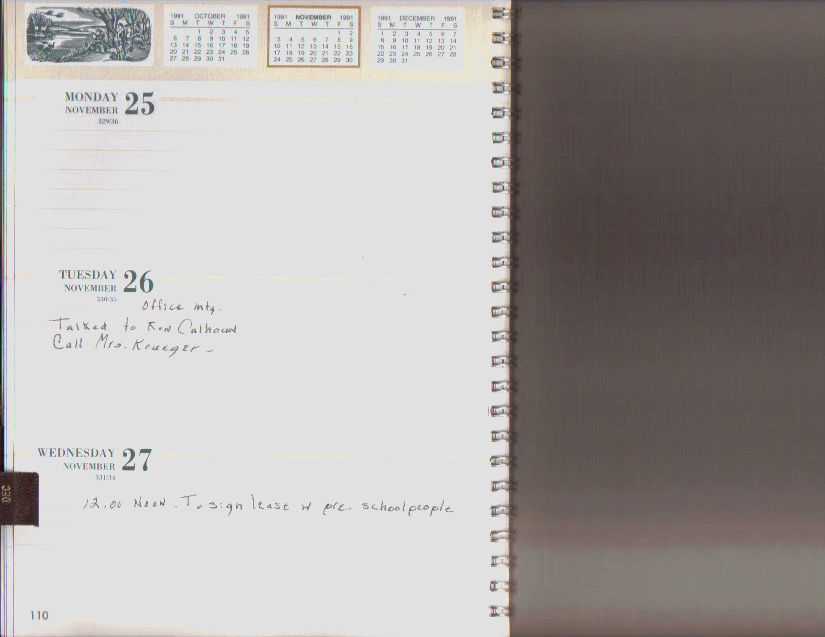 1991 OCTOBER 1991
S M T W T F S
1 2 3 4 5
6 7 8 9 10 11 12
13 14 15 16 17 18 19
20 21 22 23 24 25 26
27 28 29 30 31
1991 NOVEMBER 1991
S M T W T F S
1 2
3 4 5 6 7 8 9
10 11 12 13 14 15 16
17 18 19 20 21 22 23
24 25 26 27 28 29 30
1991 DECEMBER 1991
S M T W T F S
1 2 3 4 5 6 7
8 9 10 11 12 13 14
15 16 17 18 19 20 21
22 23 24 25 26 27 28
29 30 31
MONDAY 25
NOVEMBER
329/36
TUESDAY 26
NOVEMBER
330/35
Office mtg.
Talked to Ron Calhoun
Call Mrs. Krueger -
WEDNESDAY 27
NOVEMBER
331/34
DEC
12.00 Noon. To sign lease w pre. school people
110